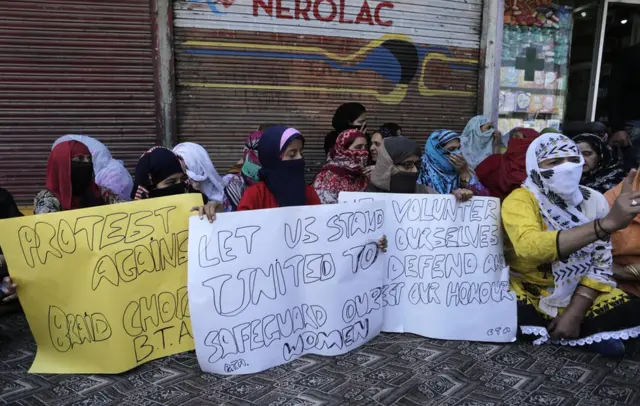 NEROLAC
PROTEST
AGAINST
BRAID CHO
B.T.A.
LET US STAND
UNITED TO
SAFEGUARD OUR
WOMEN
B.T.A.
VOLUNTER
OURSELVES
DEFEND AN
OUR HONOUR